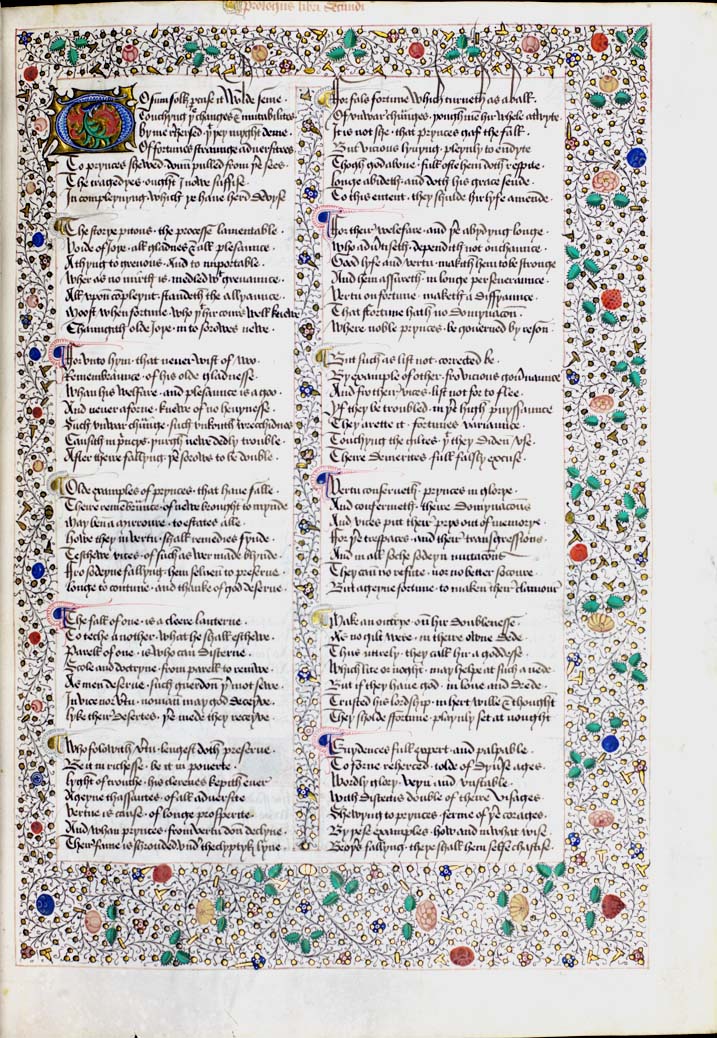 Prologus libri Secundi
TO sum folk p̄case it wolde seme
Touchyng þe chaunges & mutabilites
By me rehersed þt þey myghte deme
Of fortunes straunge adversitees
To prynces shewed doun pulled from þeir sees
The tragedyes ought I nowe suffise
In compleynyng which ye have herd devyse
The storye pitous the processe lamentable
Voide of ioye all gladnes & all plesaunce
A thyng to grevous and to inportable
Wher as no mirth is medled wt grevaunce
All upon cōpleynt standeth the allyaunce
Moost when fortune who þt hir cours well knewe
Chaungith olde ioye in to sorowes newe
For unto hym that never wist of woo
Remembraunce of his olde gladnesse
Whan his welfare and plesaunce is agoo
And never aforne knewe of no hevynesse
Such unwar chaunge such unkouth wrecchidnes
Causith in p̄nces þurgh newe dedly trouble
After theire fallyng þe sorows to be double
Olde examples of prynces that have falle
Theire remēbraunce of newe brought to mynde
May ben a mirroure to estates alle
Howe they in vertu shall remedies fynde
To eschewe vices of such as wer made blynde
Fro sodeyne fallyng hem selven to preserve
Longe to contune and thanke of god deserve
The fall of one is a cleere lanterne
To teche another what he shall eschewe
Parell of one is who can discerne
Scole and doctryne from parell to remewe
As men deserve such guerdon þt mot sewe
In vice nor v̄tu no man may god deceyve
Lyke their desertes þe mede they receyve
Who folowith v̄tu lengest doth preserve
Be it in richesse be it in poverte
Lyght of trouthe his cleernes kepith ever
Ageyne thassautes of all adversite
Vertue is cause of longe prosperite
And whan prynces from vertu don declyne
Their fame is shrouded und the clyptyk lyne
For fals fortune which turneth as a ball
Of unwar chaunges þough men hir whele atwyte
It is not she that prynces gaf the fall
But vicious lyvyng pleynly to endyte
Though god above full ofte hem doth respite
Longe abideth and doth his grace sende
To this entent they shulde hir lyfe amende
For their welefare and þe abydyng longe
Who advertiseth dependith not on chaunce
Good lyfe and vertu makith hem to be stronge
And hem assureth in longe perseveraunce
Vertu on fortune maketh a diffyaunce
That fortune hath no domynacon
Where noble prynces be governed by reson
But such as list not corrected be
By example of other fro vicious gov̄naunce
And fro their vices list not for to flee
Yf they be troubled in þe high puyssaunce
They arette it fortunes variaunce
Touchyng the giltes þt they diden use
Theire demerites full falsly excuse
Vertu conserveth prynces in glorye
And confermeth theire domynacōns
And vices put their prys out of memorye
For þe trespaces and their transgressions
And in all suche sodeyn mutacōns
They can no refute nor no better socoure
But ageyne fortune to maken their clamour
Make an outcrye on hir doublenesse
As no gilt were in theire owne dede
Thus untrewly they call hir a goddesse
Which lite or nought may helpe at such a nede
But if they have god in love and drede
Trusted his lordship in hert wille & thought
They sholde ffortune playnly set at nought
Evydences full expert and palpable
To forne reherced tolde of dyvse ages
Wordly glory veyn and unstable
With disceitus double of theire visages
Shewyng to prynces ferme of þe corages
By þese examples how and in what wise
By oþre fallyng theye shall hem selfe chastise